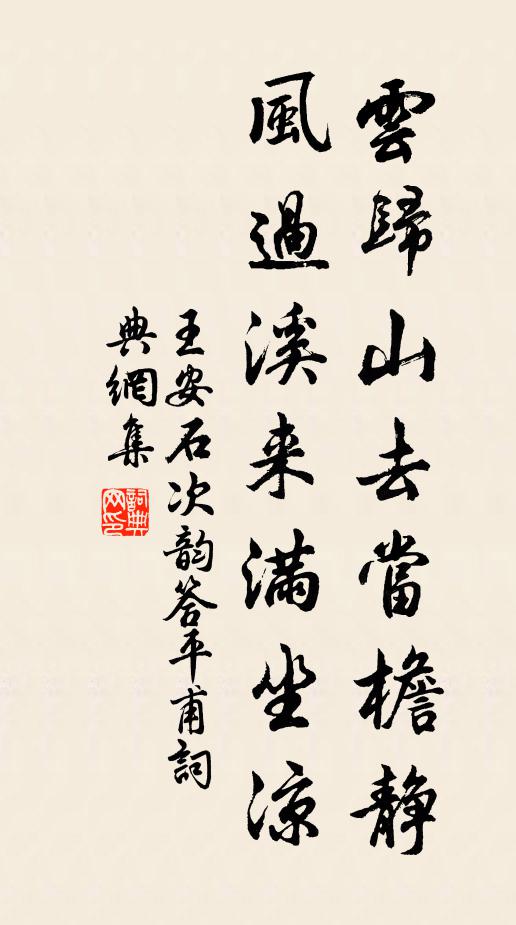 雲歸山去當檐静
風過溪来滿坐涼
王安石次韵答平甫詞
典網集
詞典网印